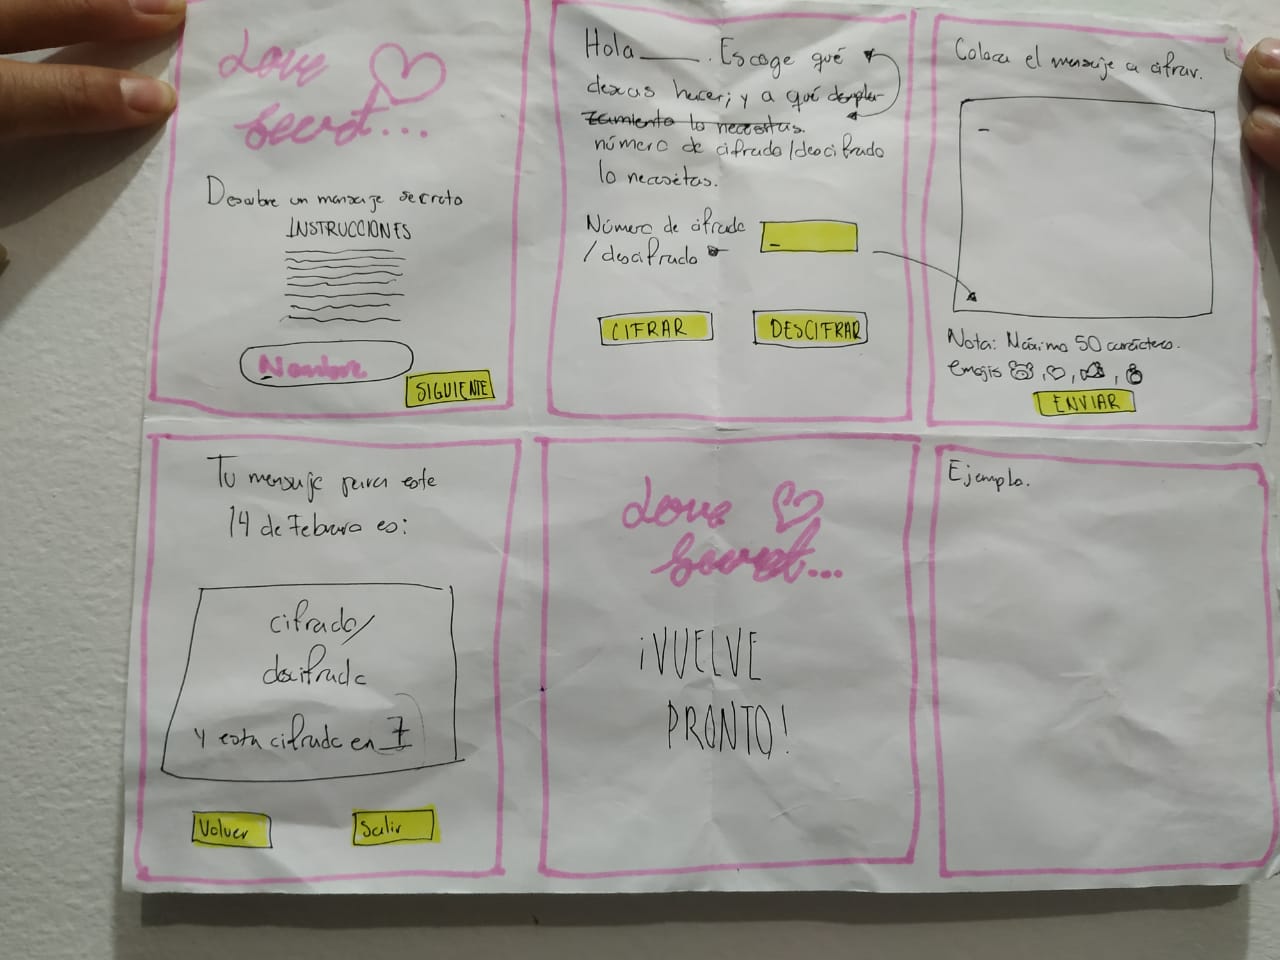 Love
Secret...
Descubre un mensaje secreto
INSTRUCCIONES
Nombre
SIGUIENTE
Hola____. Escoge qué
deseas hacer; y a qué despla-
zamiento lo necesitas.
número de cifrado/descifrado
lo necesitas.
Número de cifrado
/descifrado
CIFRAR
DESCIFRAR
Coloca el mensaje a cifrar.
Nota: Máximo 50 carácteres.
emojis 🐻,♡,
ENVIAR
Tu mensaje para este
14 de Febrero es:
cifrado/
descifrado
y esta cifrado en 7
Volver
Salir
Love
Secret...
¡VUELVE
PRONTO!
Ejemplo.